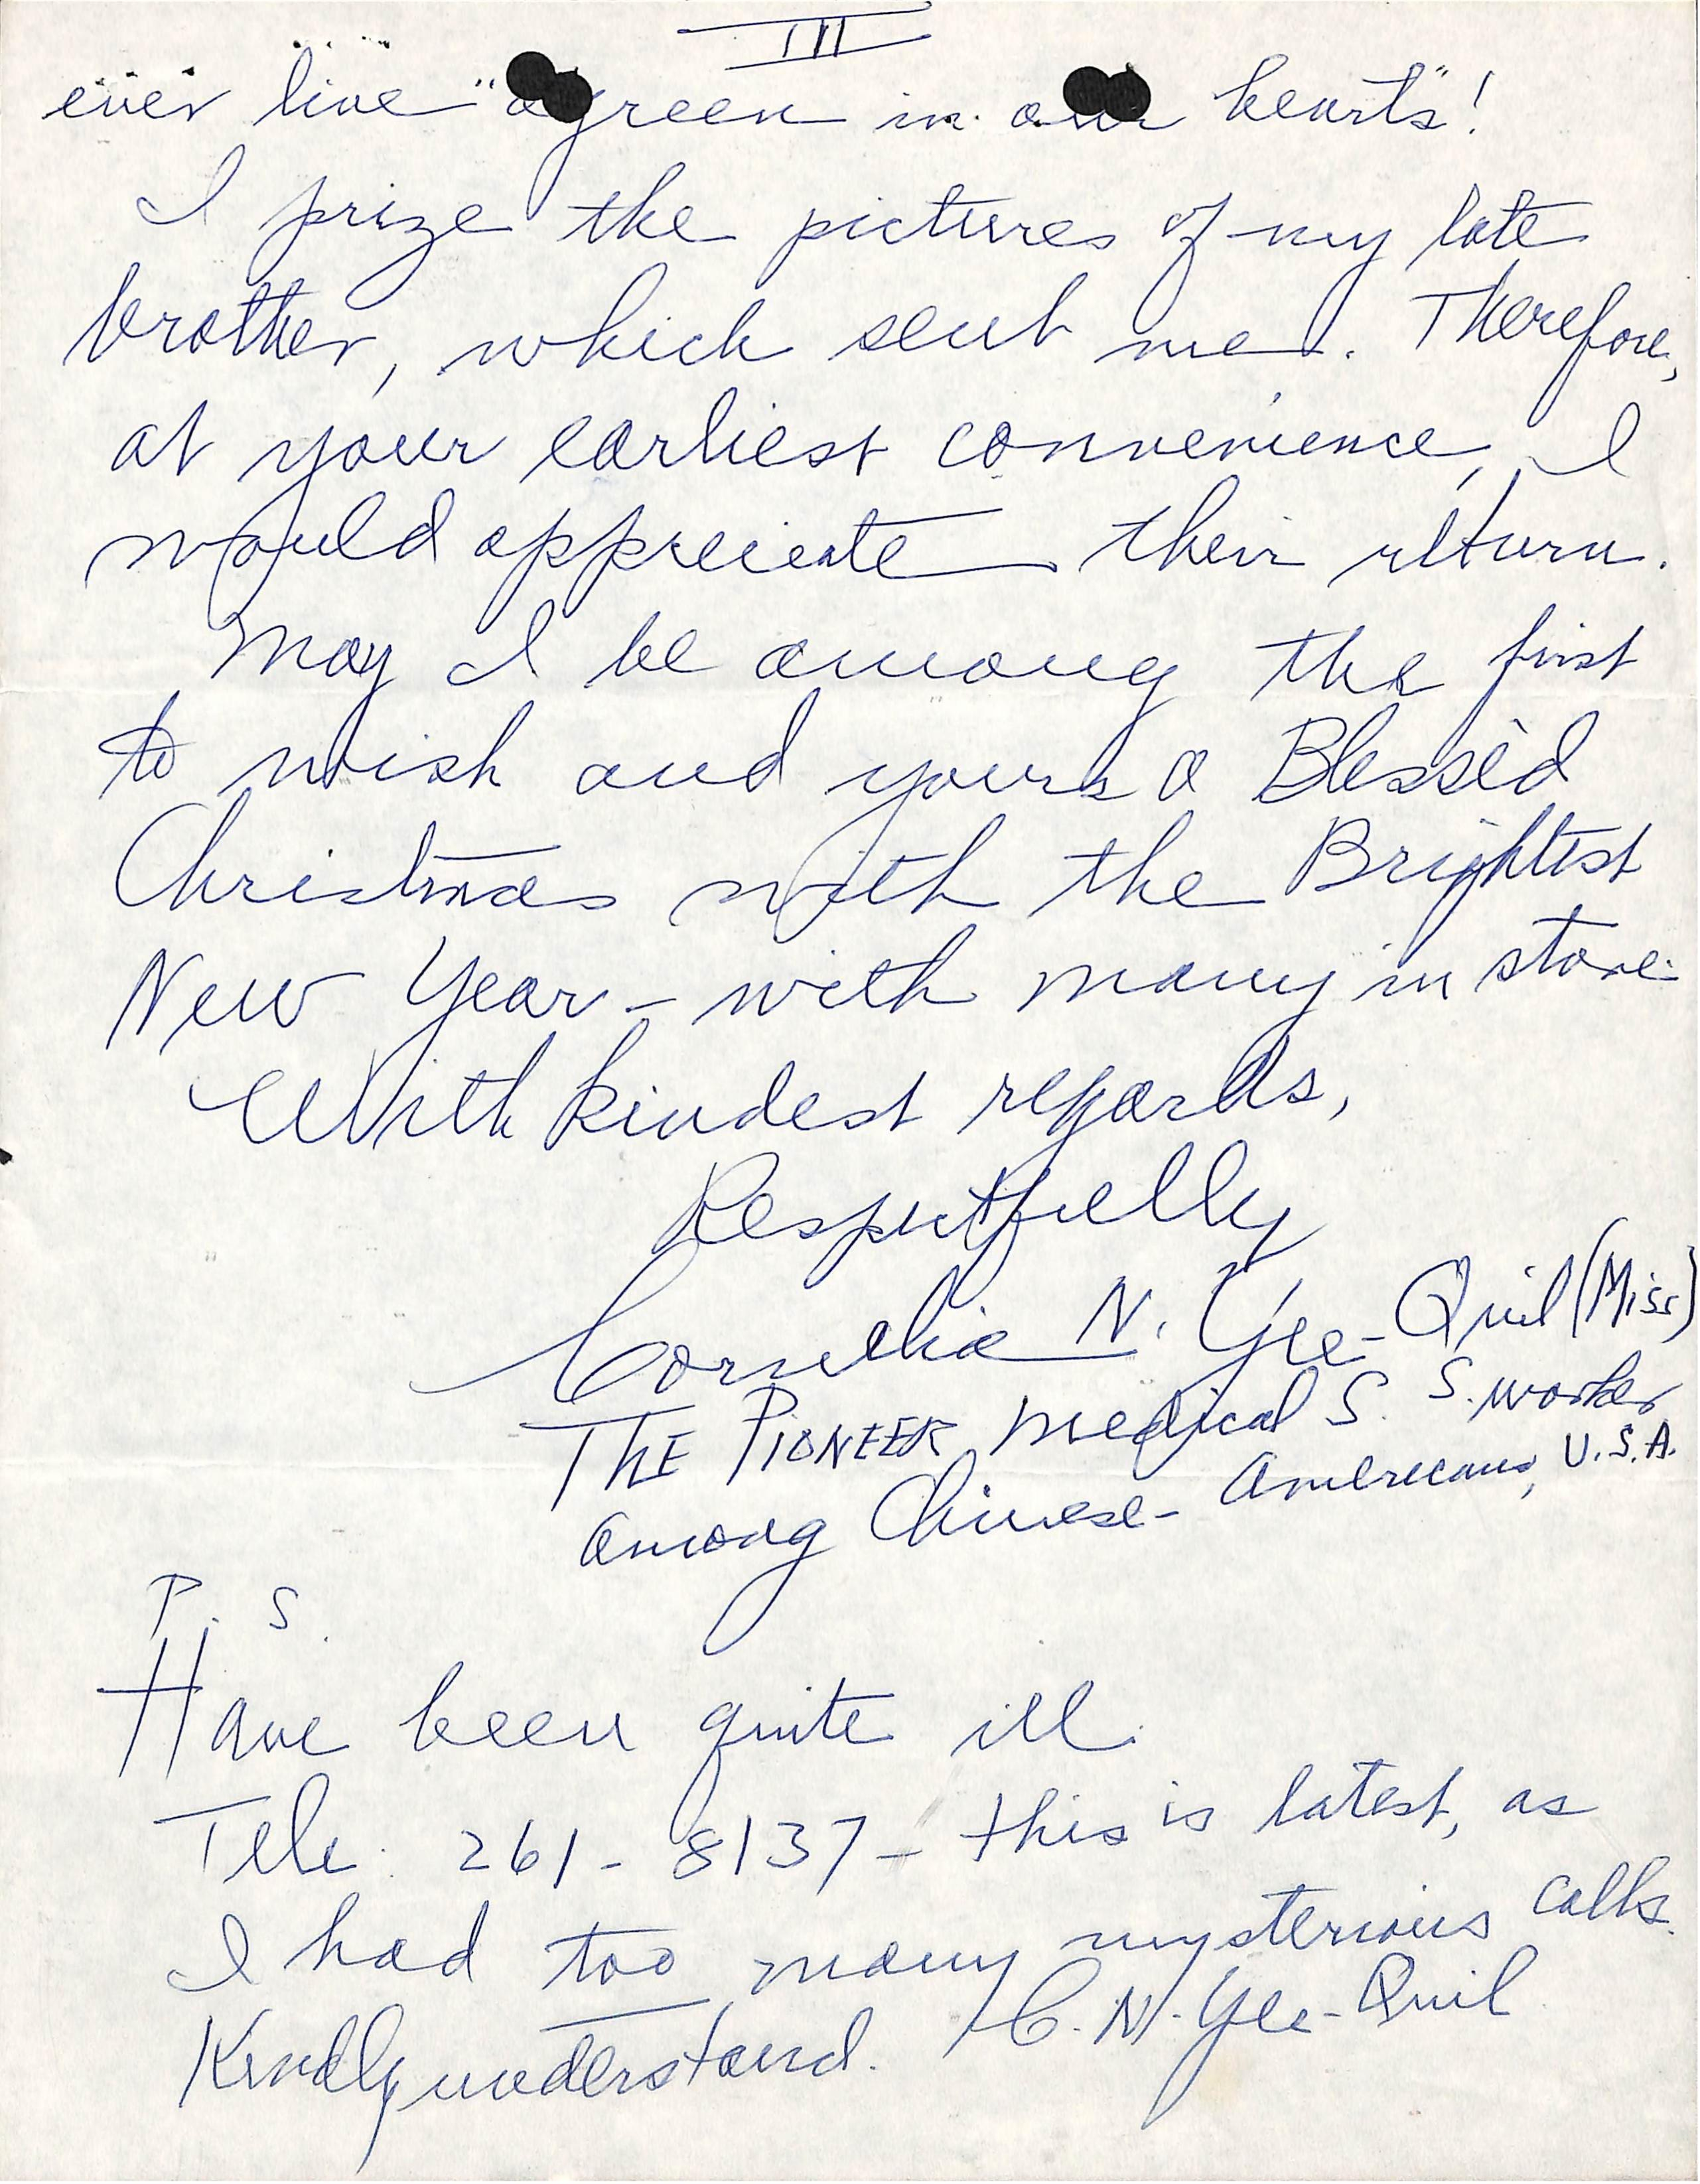 III
ever live "agreen in our hearts"!
I prize the pictures of my late
brother, which sent me. Therefore,
at your earliest convenience, I
would appreciate their return.
May I be among the first
to wish and yours a Blessèd
Christmas with the Brightest
New Year - with many in store.
With kindest regards,
Respectfully
Cornelia N. Yee-Quil (Miss)
THE PIONEER Medical S. S. worker
among Chinese-Americans, U.S.A.
P. S.
Have been quite ill.
Tele: 261-8137 - this is latest, as
I had too many mysterious calls.
Kindly understand. C. N. Yee-Quil